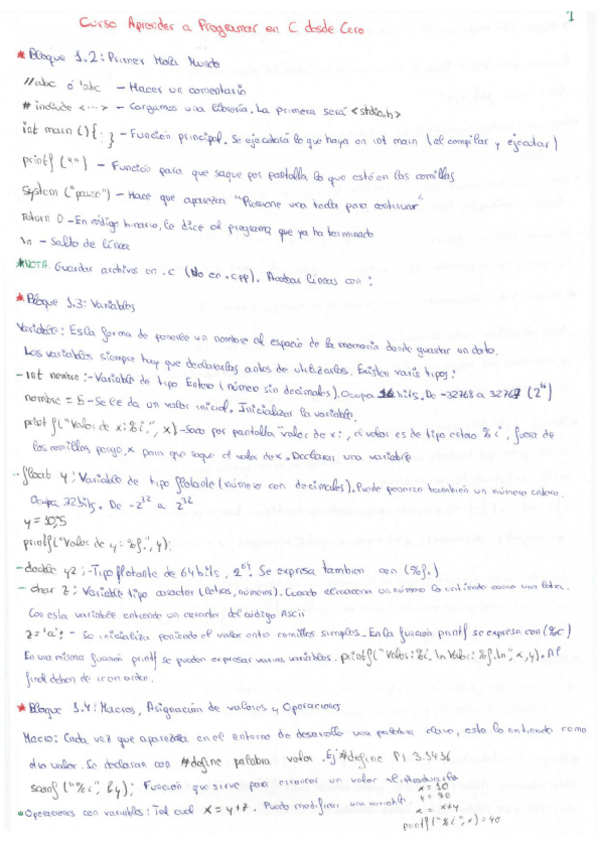 1
Curso Aprender a Programar en C desde Cero
* Bloque 1.2: Primer Hola Mundo
//abc ó 'abc - Hacer un comentario
# include <...> - Cargamos una librería. La primera será <stdio.h>
int main () { : } - Función principal. Se ejecutará lo que haya en int main (al compilar y ejecutar)
printf ("") - Función para que saque por pantalla lo que está en las comillas
system ("pause") - Hace que aparezca "Presione una tecla para continuar"
return 0 - En código binario, le dice al programa que ya ha terminado
\n - Salto de línea
*NOTA: Guardar archivos en .c (No en .cpp). Acabar líneas con ;
* Bloque 1.3: Variables
Variable: Es la forma de ponerle un nombre al espacio de la memoria donde guardar un dato.
Las variables siempre hay que declararlas antes de utilizarlas. Existen varios tipos:
- Int nombre; - Variable de tipo Entero (número sin decimales). Ocupa 16 bits. De -32768 a 32767 (2^16)
nombre = 5 - Se le da un valor inicial. Inicializar la variable.
printf ("Valor de x: %i.", x) - Saco por pantalla "valor de x:, el valor es de tipo entero %i, fuera de
las comillas pongo, x para que saque el valor de x. Declarar una variable
- float y; Variable de tipo flotante (número con decimales). Puede ponerse también un número entero.
Ocupa 32 bits. De -2^32 a 2^32
y = 10,5
printf ("Valor de y: %f.", y);
- double y2; - Tipo flotante de 64 bits, 2^64. Se expresa tambien con (%f.)
- char z; Variable tipo caracter (letras, números). Cuando almacena un número lo entiende como una letra.
Con esta variable entiende un caracter del código Ascii
z = 'a'; - Se inicializa poniendo el valor entre comillas simples. En la función printf se expresa con (%c)
En una misma función printf se pueden expresar varias variables. printf ("Valor: %i. \n Valor: %f. \n", x, y). Al
final deben de ir en orden.
* Bloque 1.4: Macros, Asignación de valores y Operaciones
Macro: Cada vez que aparezca en el entorno de desarrollo una palabra clave, esta la entiende como
otro valor. Se declaran con #define palabra valor. Ej #define PI 3.1416
scanf ("%i", &y); Función que sirve para escanear un valor
• Operaciones con variables: Tal cual x = y + z. Puedo modificar una variable
x = 10
y = 30
x = x+y
printf ("%i", x) = 40